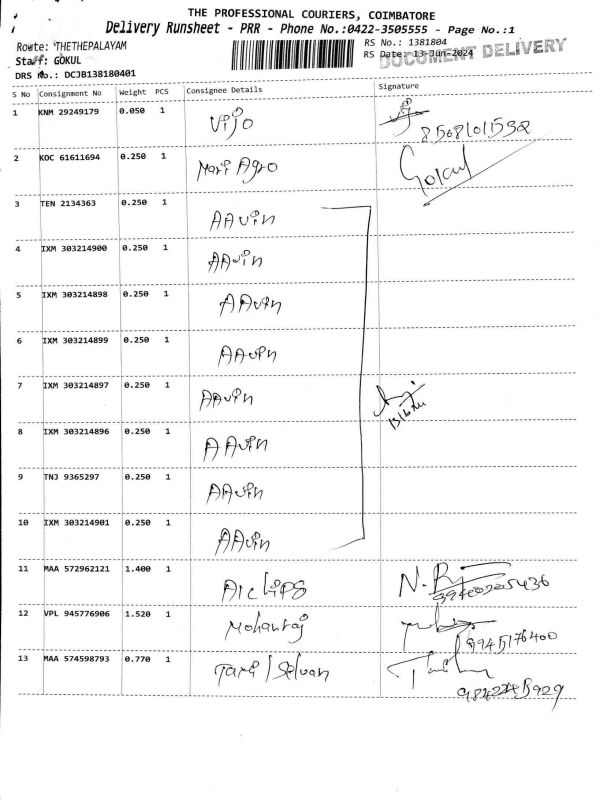 THE PROFESSIONAL COURIERS, COIMBATORE
Delivery Runsheet - PRR - Phone No.:0422-3505555 - Page No.:1
Route: THETHEPALAYAM
RS No.: 1381804
Staff: GOKUL
RS Date: 13-Jun-2024
DOCUMENT DELIVERY
DRS No.: DCJB138180401
S No Consignment No Weight PCS Consignee Details Signature
1 KNM 29249179 0.050 1 Vijo
2 KOC 61611694 0.250 1 Mari Agro Gokul
3 TEN 2134363 0.250 1 AAvin
4 IXM 303214900 0.250 1 AAvin
5 IXM 303214898 0.250 1 AAvin
6 IXM 303214899 0.250 1 AAvin
7 IXM 303214897 0.250 1 AAvin
8 IXM 303214896 0.250 1 AAvin
9 TNJ 9365297 0.250 1 AAvin
10 IXM 303214901 0.250 1 AAvin
11 MAA 572962121 1.400 1
12 VPL 945776906 1.520 1 Mohanraj
9945176400
13 MAA 574598793 0.770 1 Tamil Selvan